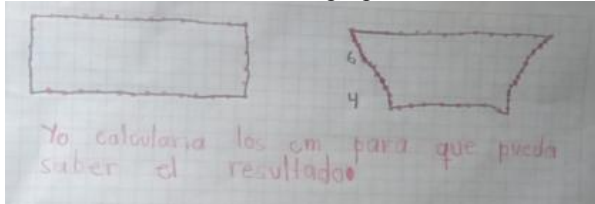 6
4
Yo calcularia los cm para que pueda
saber el resultado.